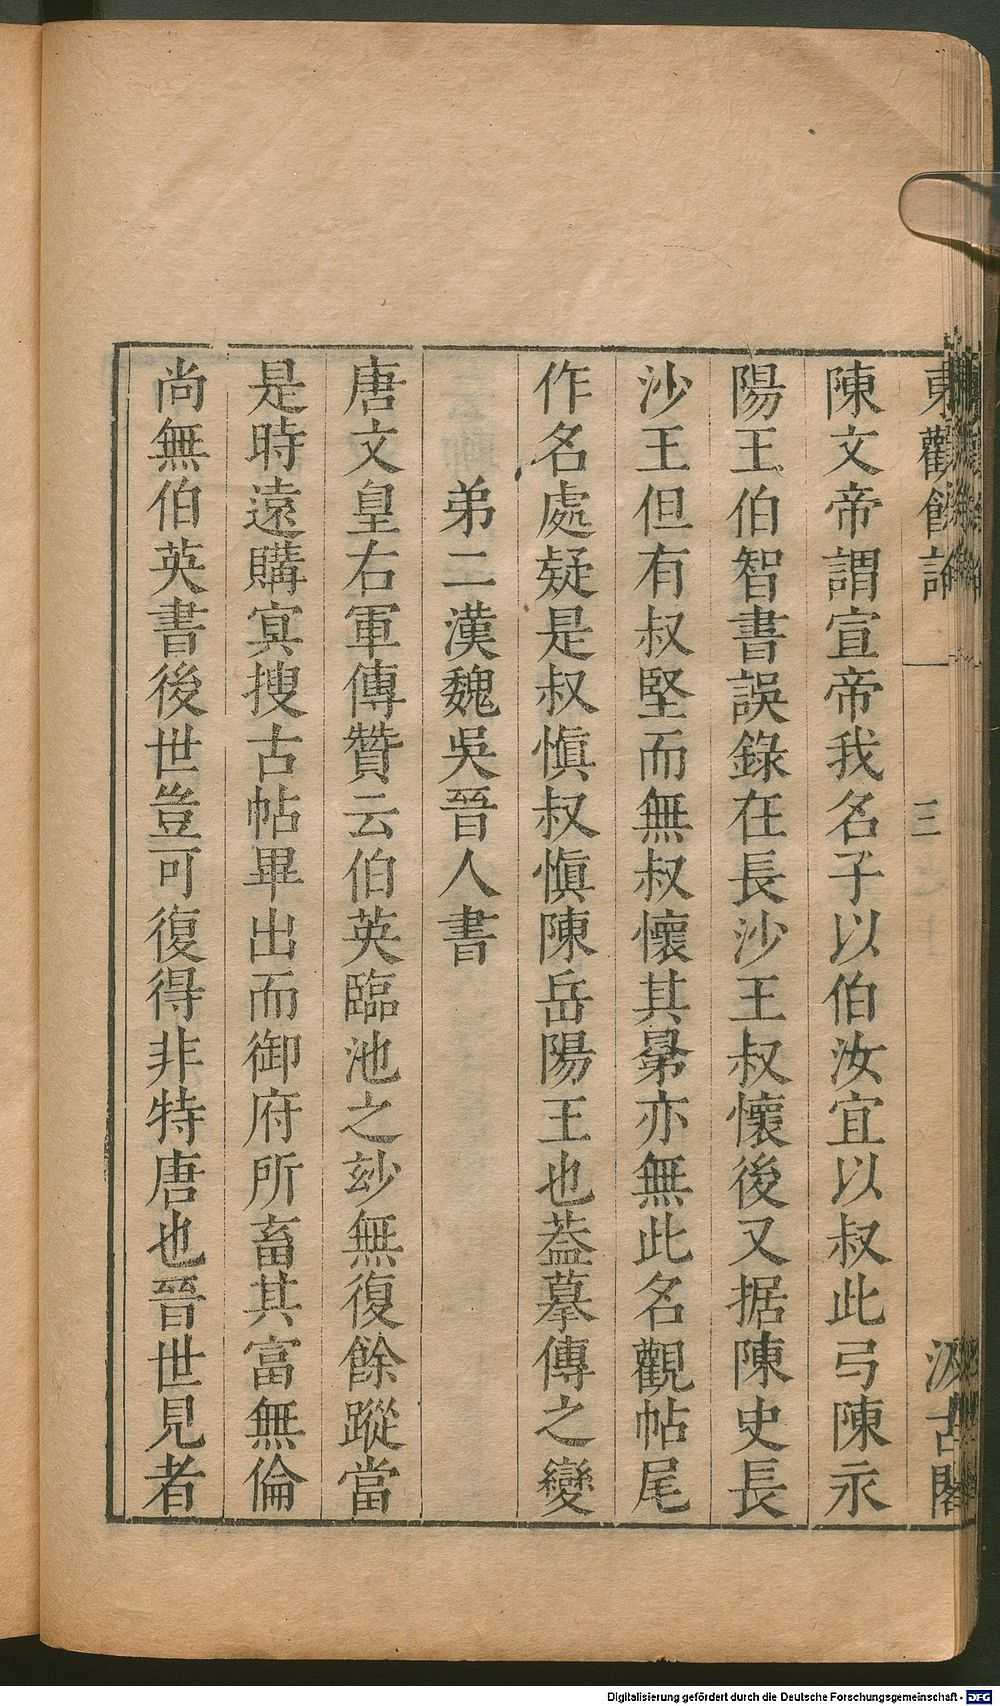 東觀餘論
一
三
汲古閣
陳文帝謂宣帝我名子以伯汝宜以叔此弓陳永
陽王伯智書誤錄在長沙王叔懷後又据陳史長
沙王但有叔堅而無叔懷其㬎亦無此名觀帖尾
作名處疑是叔愼叔愼陳岳陽王也葢摹傳之變
弟二漢魏吳晉人書
唐文皇右軍傳贊云伯英臨池之玅無復餘蹤當
是時遠購㝠搜古帖畢出而御府所畜其富無倫
尚無伯英書後世豈可復得非特唐也晉世見者
Digitalisierung gefördert durch die Deutsche Forschungsgemeinschaft - DFG